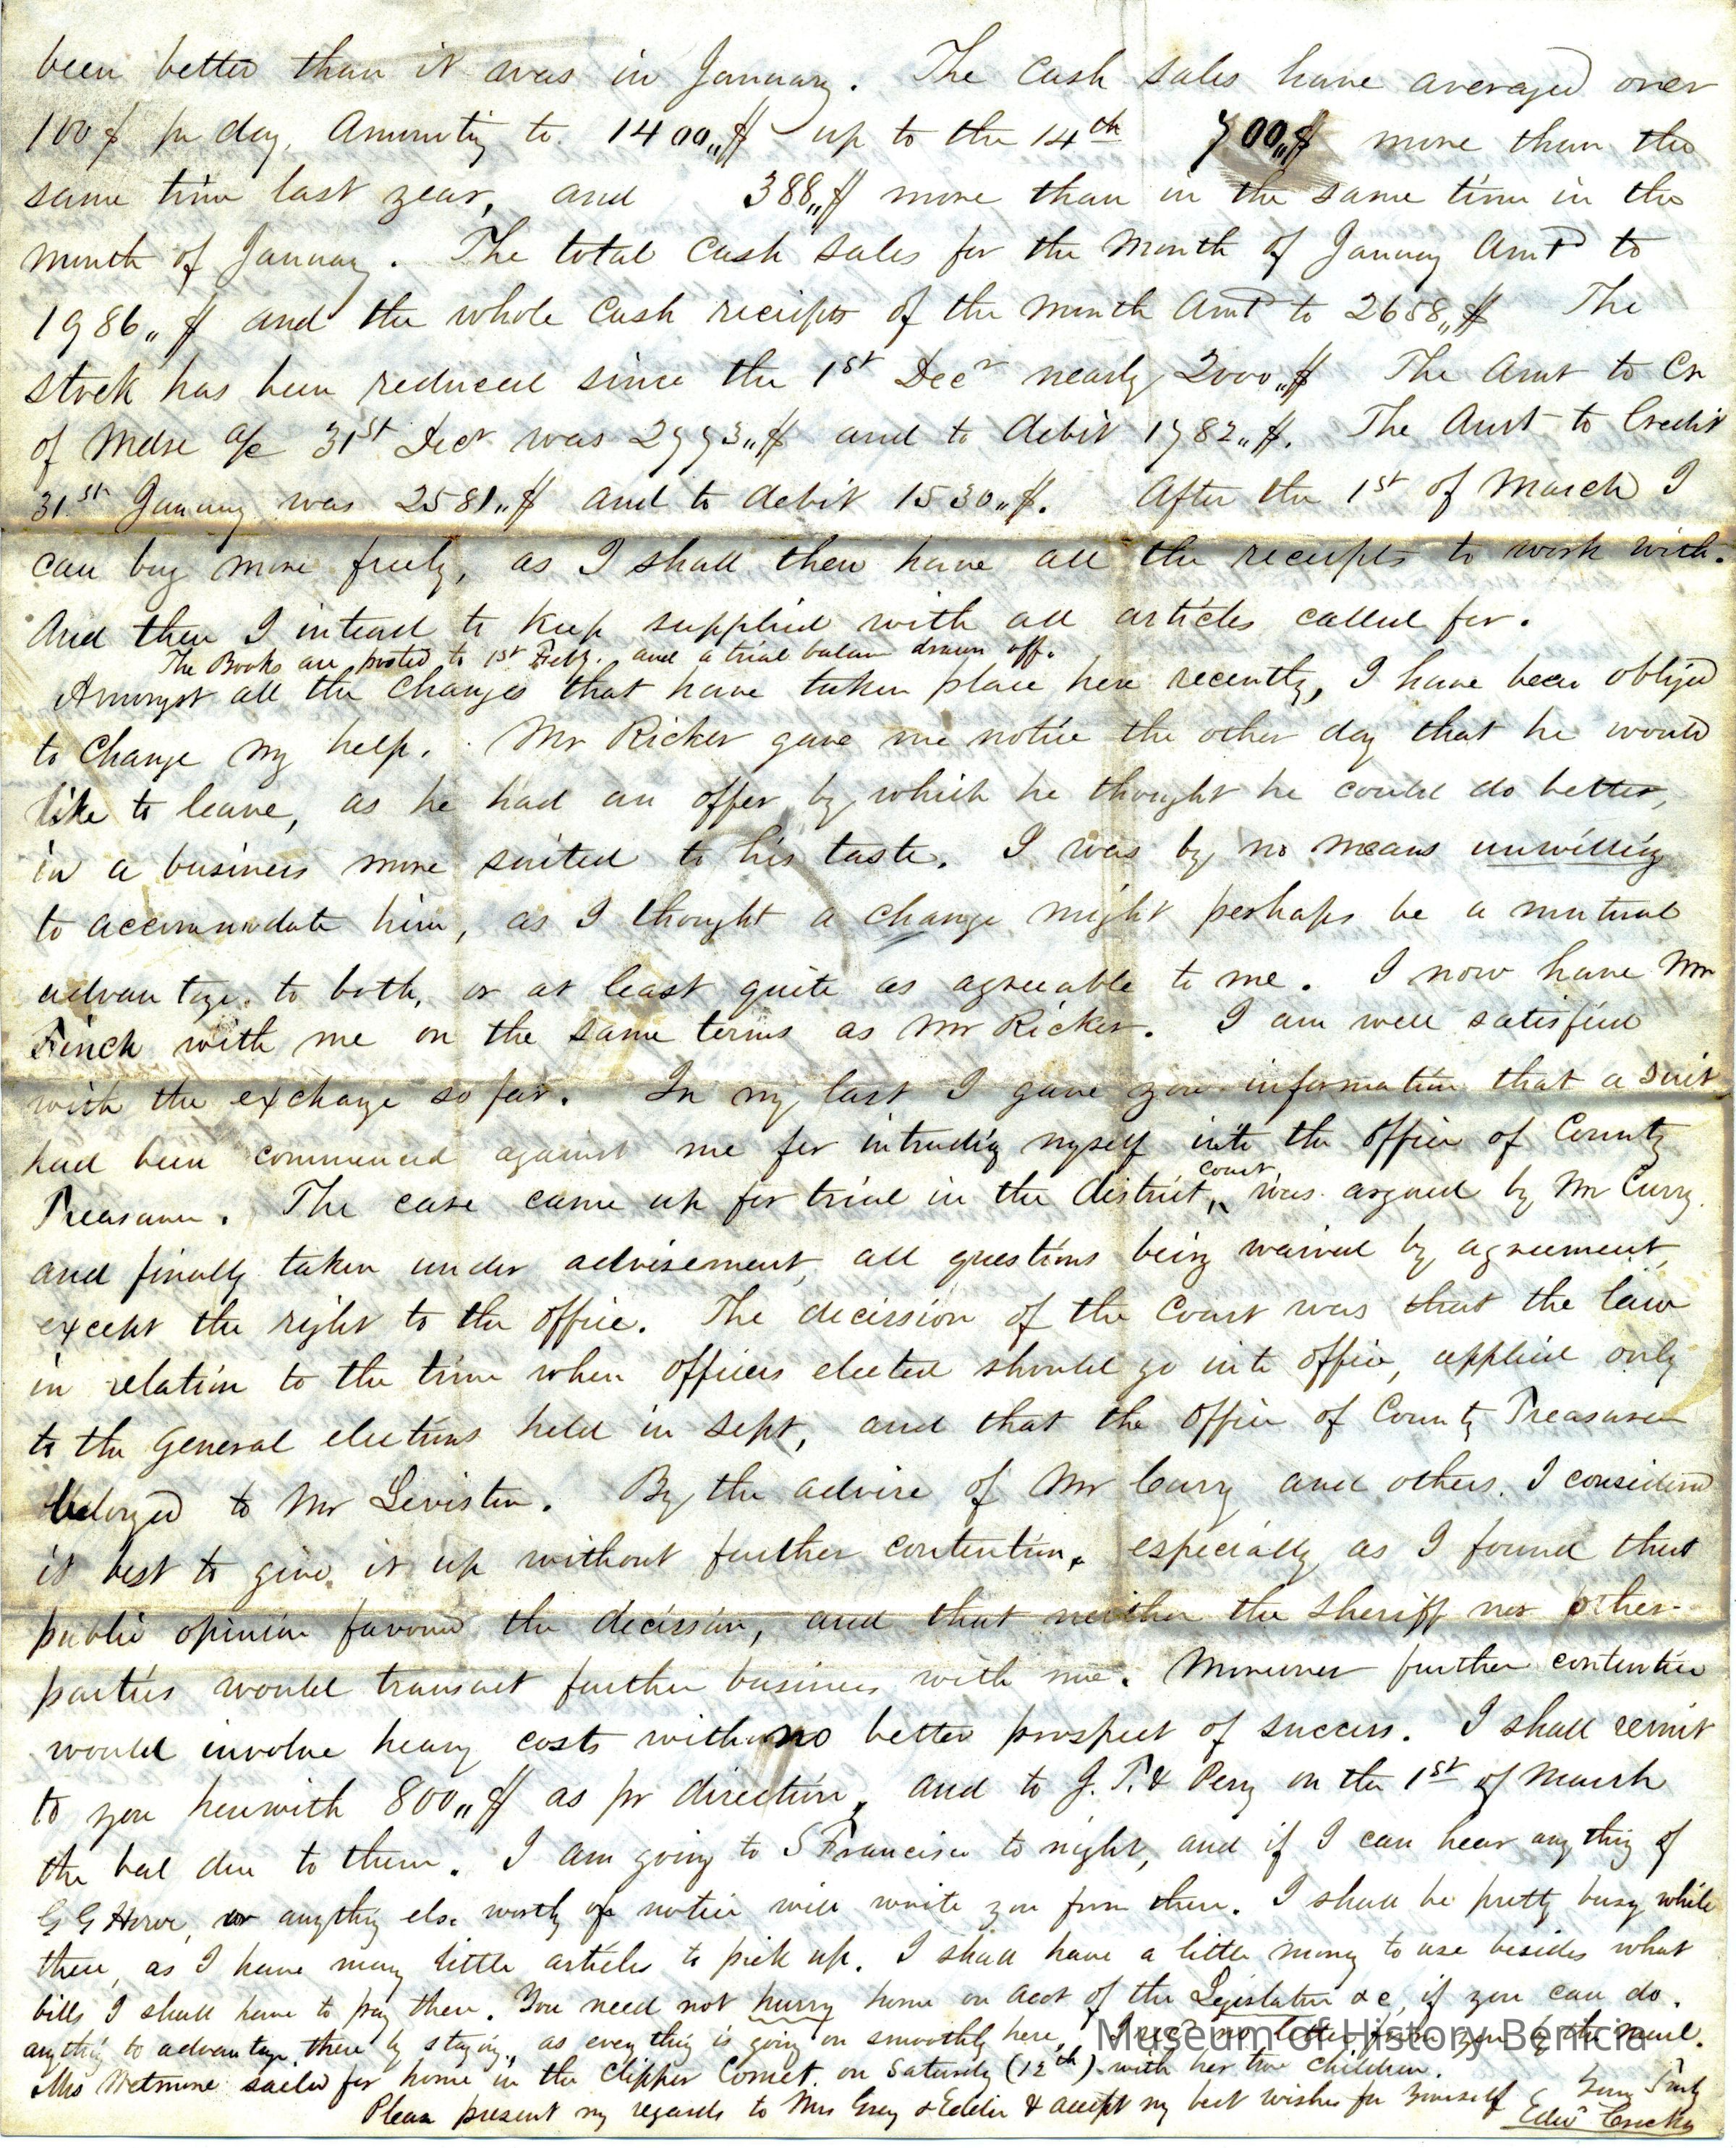 been better than it was in January. The Cash sales have averaged over
100$ pr day, Amounting to 1400,,$ up to the 14th 700,,$ more than the
same time last year, and 388,,$ more than in the same time in the
month of January. The total Cash sales for the Month of January Amtd to
1986,,$ and the whole Cash receipts of the month Amtd to 2658,,$ The
stock has been reduced since the 1st Decr nearly 2000,,$ The Amt to Cr
of Mdse a/c 31st Decr was 2993,,$ and to debit 1782,,$. The Amt to Credit
31st January was 2581,,$ and to debit 1530,,$. After the 1st of March I
can buy more freely, as I shall then have all the receipts to work with.
And then I intend to keep supplied with all articles called for.
The Books are posted to 1st Feby. and a trial balance drawn off.
Amongst all the Changes that have taken place here recently, I have been obliged
to Change my help. Mr Ricker gave me notice the other day that he would
like to leave, as he had an offer by which he thought he could do better,
in a business more suited to his taste. I was by no means unwilling
to accommodate him, as I thought a change might perhaps be a mutual
advantage to both, or at least quite as agreeable to me. I now have Mr
Finch with me on the same terms as Mr Ricker. I am well satisfied
with the exchange so far. In my last I gave you information that a suit
had been commenced against me for intruding myself into the office of County
Treasurer. The case came up for trial in the district court, was argued by Mr Curry
and finally taken under advisement, all questions being waived by agreement,
except the right to the office. The decission of the Court was that the law
in relation to the time when officers elected should go into office, applied only
to the General elections held in Sept, and that the office of County Treasurer
belonged to Mr Leviston. By the advise of Mr Curry and others. I considered
it best to give it up without further contention, especially as I found that
public opinion favored the decission, and that neither the sheriff nor other
parties would transact further business with me. Moreover further contention
would involve heavy costs with no better prospect of success. I shall remit
to you herewith 800,,$ as pr direction, and to J. P. & Perry on the 1st of March
the bal due to them. I am going to S Francisco to night, and if I can hear any thing of
G G Howe, or anything else worthy of notice will write you from there. I shall be pretty busy while
there, as I have many little articles to pick up. I shall have a little money to use besides what
bills I shall have to pay there. You need not hurry home on acct of the Legislature &c, if you can do
anything to advantage there by staying, as every thing is going on smoothly here, I recd no letter from you by the mail.
Mrs Wetmore sailed for home in the Clipper Comet on Saturday (12th) with her two children.
Please present my regards to Mrs Gray & Eddie & accept my best wishes for yourself
Yours Truly
Museum of History Benicia